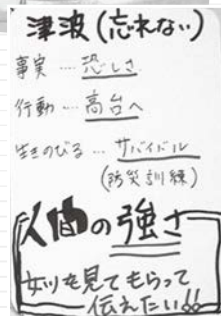 津波(忘れない)
事実…恐しさ
行動…高台へ
生きのびる…サバイバル
(防災訓練)
人間の強さ
女川を見てもらって
伝えたい!!